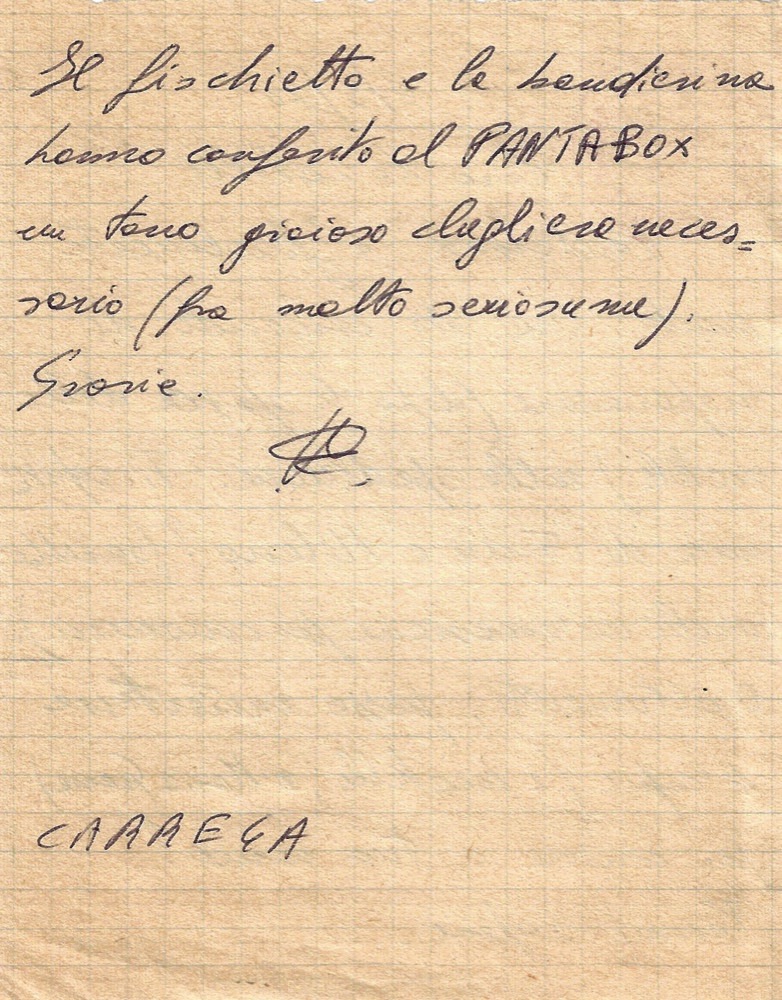 Il fischietto e la bandierina
hanno conferito al PANTABOX
un tono gioioso che gli era neces=
sario (fra molto seriosume).
Grazie.
CARREGA